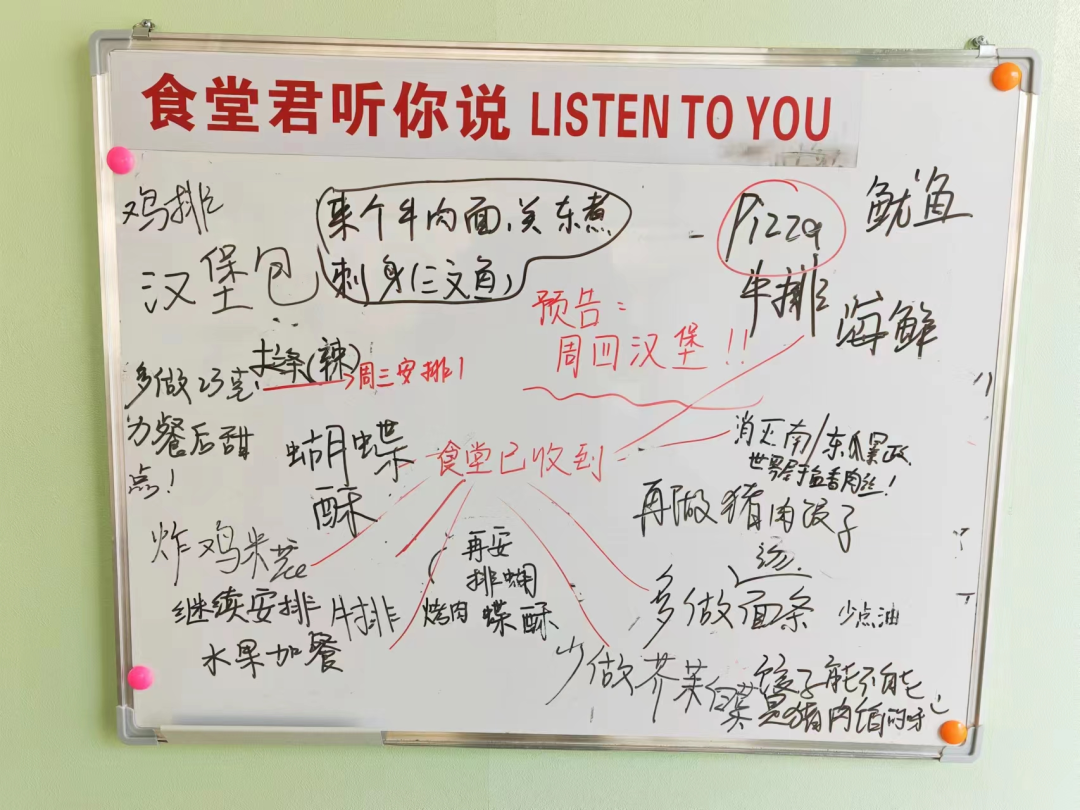 食堂君听你说 LISTEN TO YOU
鸡排
汉堡包
来个牛肉面、关东煮
刺身(三文鱼)
Pizza
牛排
鱿鱼
海鲜
预告:
周四汉堡!!
(辣)
周三安排!
多做
为餐后甜
点!
蝴蝶
酥
食堂已收到
消灭南/东瓜暴政
世界属于鱼香肉丝!
再做猪肉饺子
炸鸡米花
继续安排牛排
水果加餐
再安
排蝴
蝶酥
烤肉
多做面条
汤
少点油
少做芥菜白菜
饺子能不能
是猪肉馅的